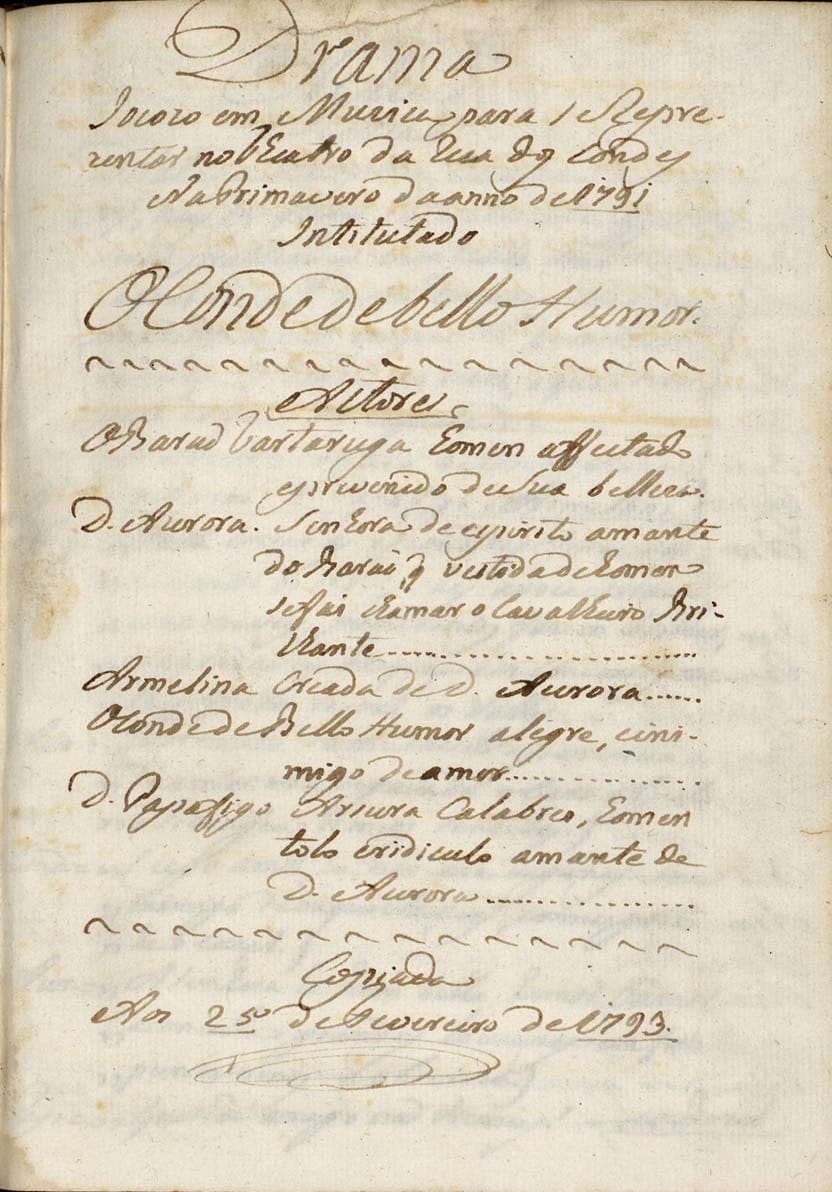 Drama
Jocozo em Muzica para se Repre-
zentar no Theatro da Rua dos Condes
Na Primavera do anno de 1791
Intitulado
O Conde de bello Humor.
Actores
O Baraõ Tartaruga homem affectado
e prevenido de sua belleza.
D. Aurora. Senhora de espirito amante
do Baraõ, q vestida de homem
se faz chamar o Cavalheiro Bri-
lhante
Armelina Creada de D. Aurora
O Conde de Bello Humor alegre, e ini-
migo de amor
D. Papafigo Arsura Calabrez, homem
tolo e ridiculo amante de
D. Aurora
Copiada
Aos 25 de Fevereiro de 1793.